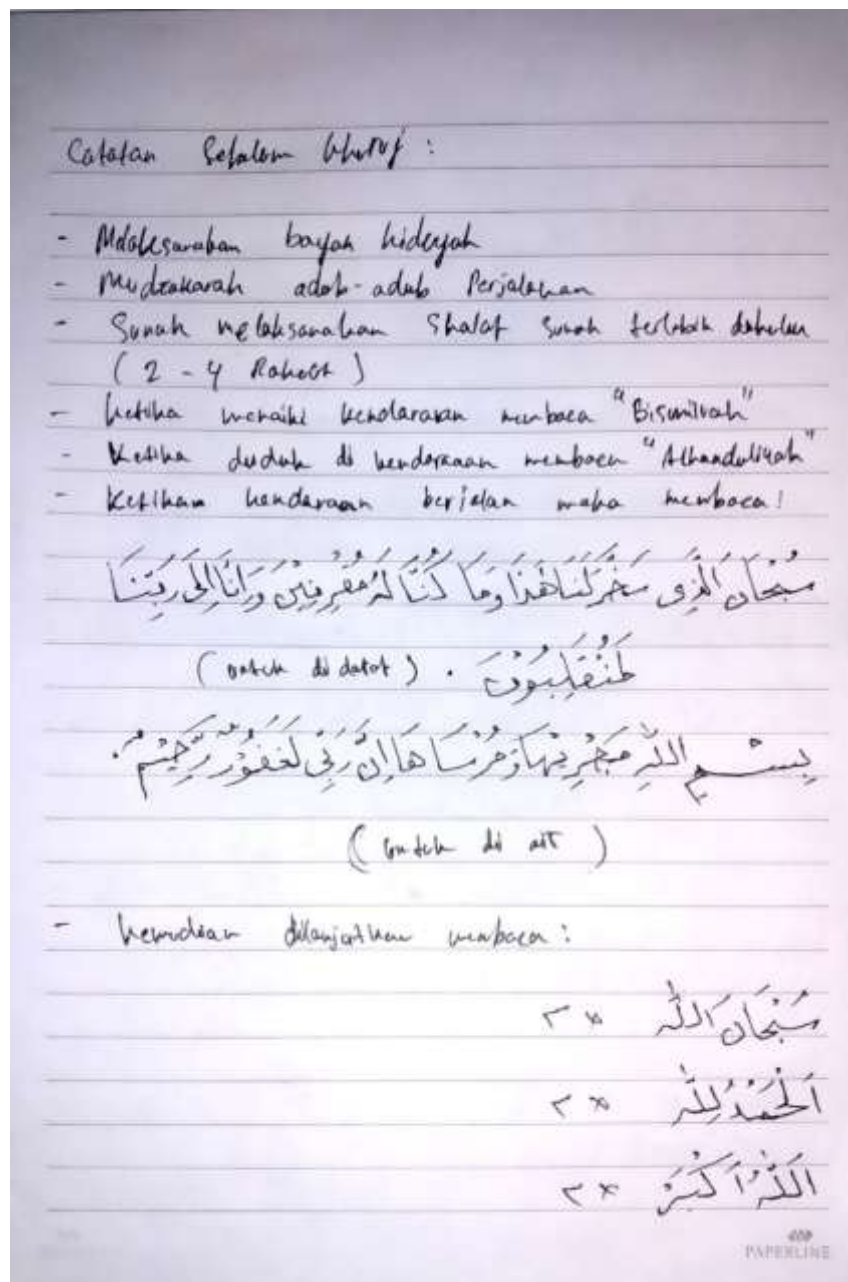 Catatan Sebelum khuruj :
- Melaksanakan bayan hidayah
- Mudzakarah adab-adab Perjalanan
- Sunah melaksanakan Shalat sunah terlebih dahulu
( 2 - 4 Rakaat )
- ketika menaiki kendaraan membaca "Bismillah"
- Ketika duduk di kendaraan membaca "Alhamdulillah"
- Ketikan kendaraan berjalan maka membaca :
سُبْحَانَ الَّذِى سَخَّرَ لَنَا هَذَا وَمَا كُنَّا لَهُ مُقْرِنِيْنَ وَاِنَّا اِلَى رَبِّنَا
لَمُنْقَلِبُوْنَ . ( untuk di darat )
بِسْمِ اللهِ مَجْرٖىهَا وَمُرْسَاهَا اِنَّ رَبِّى لَغَفُوْرٌ رَّحِيْمٌ .
( untuk di air )
- kemudian dilanjutkan membaca :
سُبْحَانَ اللّٰهِ × ٣
اَلْحَمْدُ لِلّٰهِ × ٣
اَللّٰهُ اَكْبَرُ × ٣
PAPERLINE